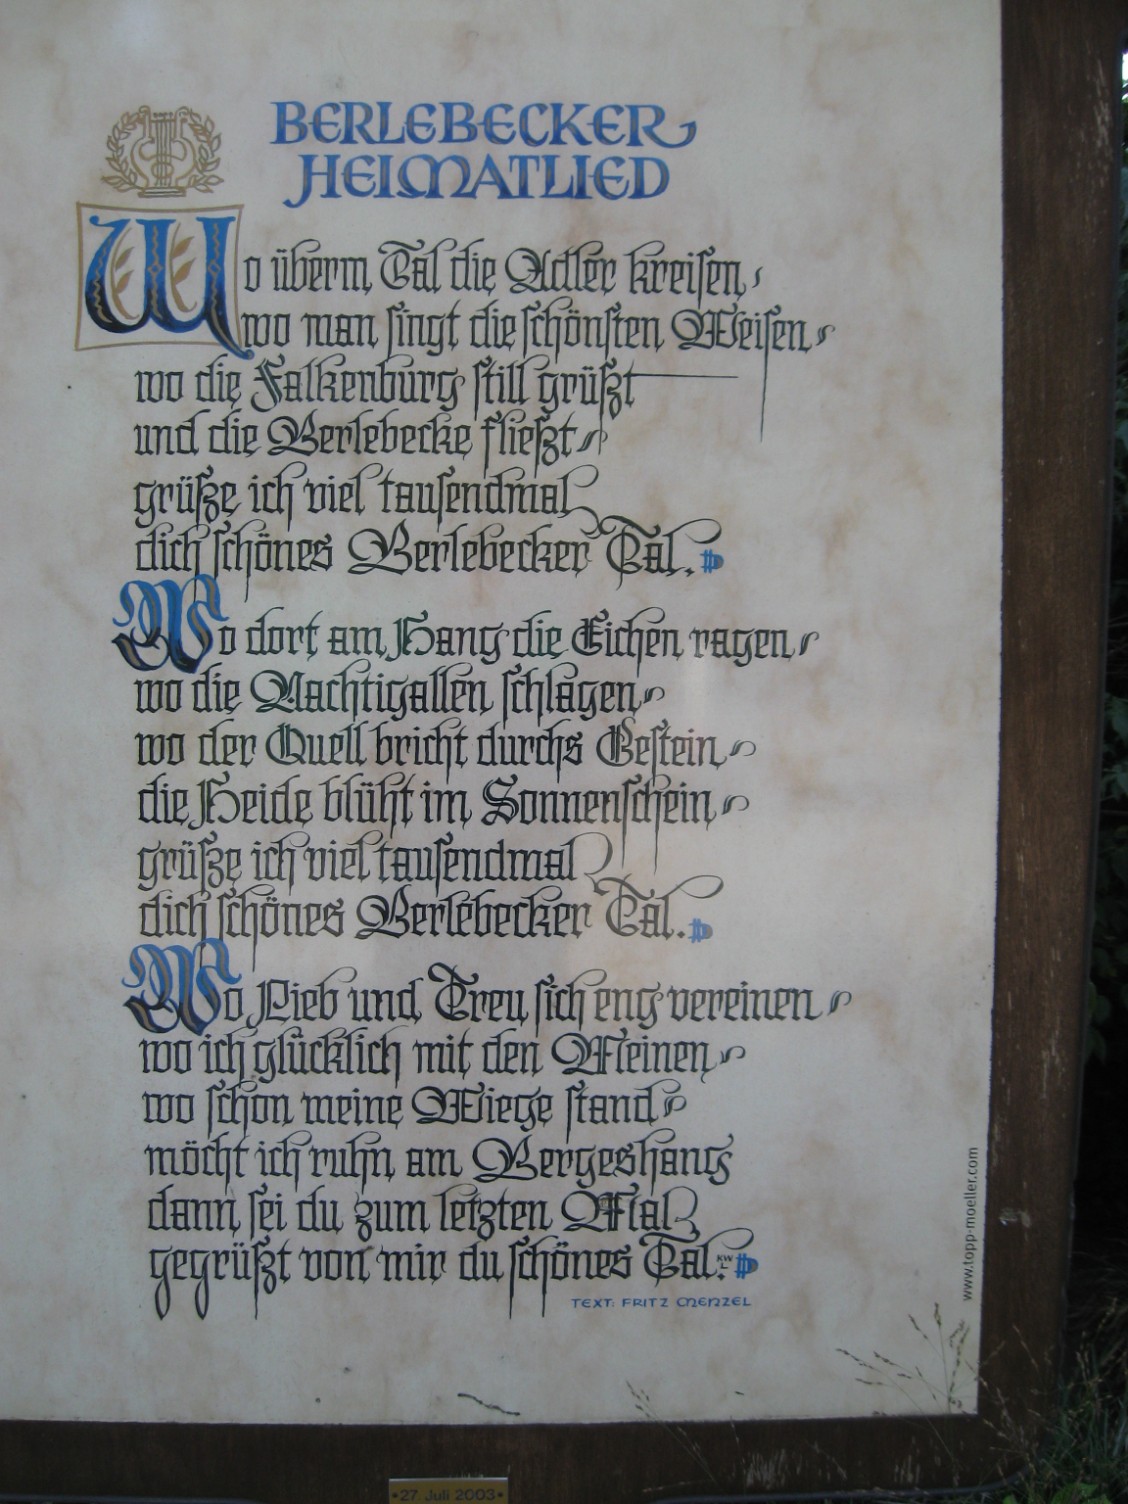 BERLEBECKER
HEIMATLIED
Wo überm Tal die Adler kreisen,
wo man singt die schönsten Weisen,
wo die Falkenburg still grüßt
und die Berlebecke fließt,
grüße ich viel tausendmal
dich schönes Berlebecker Tal.
Wo dort am Hang die Eichen ragen,
wo die Nachtigallen schlagen,
wo der Quell bricht durchs Gestein,
die Heide blüht im Sonnenschein,
grüße ich viel tausendmal
dich schönes Berlebecker Tal.
Wo Lieb und Treu sich eng vereinen,
wo ich glücklich mit den Meinen,
wo schon meine Wiege stand,
möcht ich ruhn am Bergeshang
dann sei du zum letzten Mal
gegrüßt von mir du schönes Tal.
TEXT: FRITZ MENZEL
www.topp-moeller.com
•27 Juli 2003•